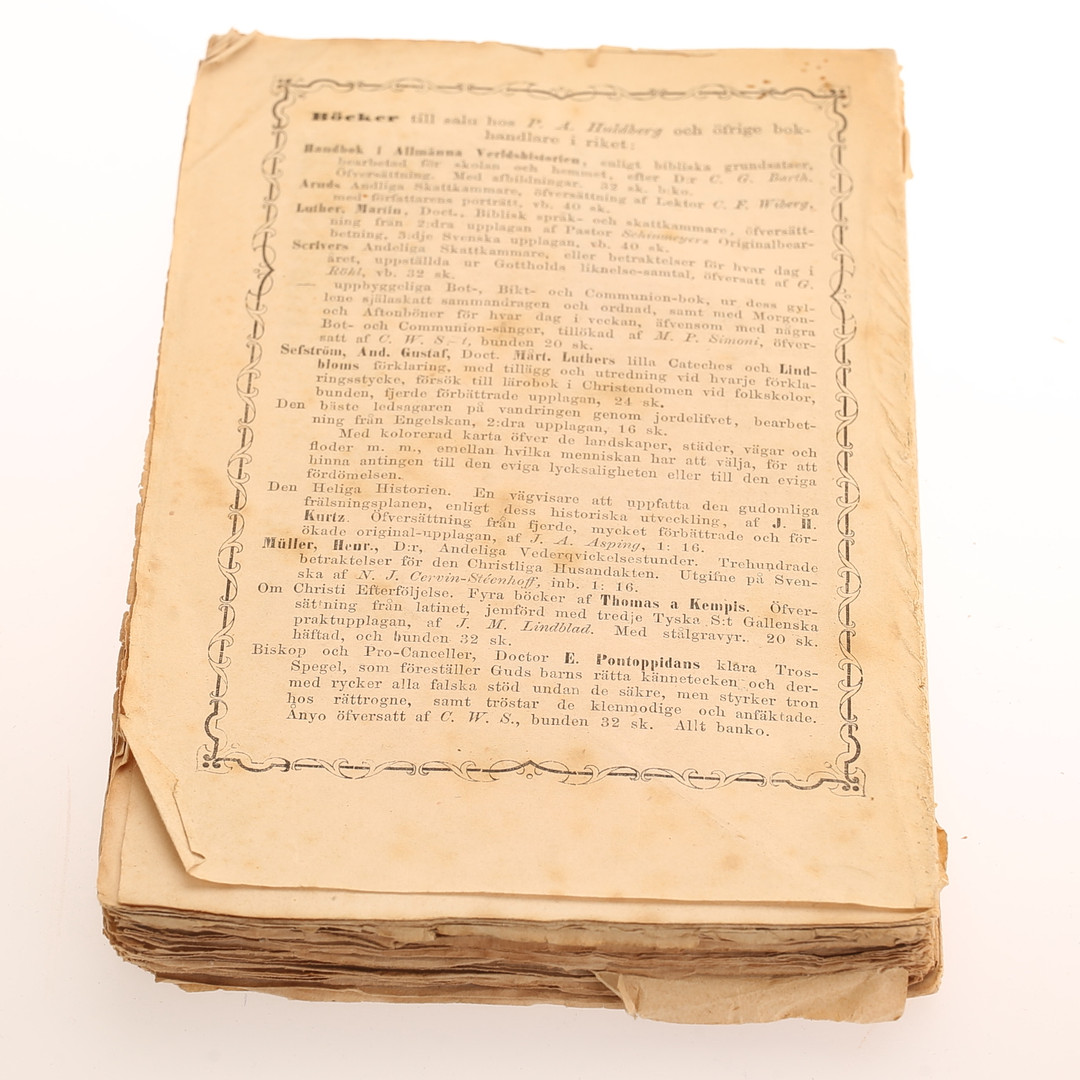 Böcker till salu hos P. A. Huldberg och öfrige bok-
handlare i riket:
Handbok i Allmänna Verldshistorien, enligt bibliska grundsatser,
bearbetad för skolan och hemmet, efter D:r C. G. Barth.
Öfversättning. Med afbildningar. 32 sk. b:ko.
Arnds Andliga Skattkammare, öfversättning af Lektor C. F. Wiberg,
med författarens porträtt, vb. 40 sk.
Luther, Martin, Doct., Biblisk språk- och skattkammare, öfversätt-
ning från 2:dra upplagan af Pastor Schinmeyers Originalbear-
betning, 3:dje Svenska upplagan, vb. 40 sk.
Scrivers Andeliga Skattkammare, eller betraktelser för hvar dag i
året, uppställda ur Gottholds liknelse-samtal, öfversatt af G.
Röhl, vb. 32 sk.
— uppbyggeliga Bot-, Bikt- och Communion-bok, ur dess gyl-
lene själaskatt sammandragen och ordnad, samt med Morgon-
och Aftonböner för hvar dag i veckan, äfvensom med några
Bot- och Communion-sånger, tillökad af M. P. Simoni, öfver-
satt af C. W. S—t, bunden 20 sk.
Sefström, And. Gustaf, Doct. Märt. Luthers lilla Cateches och Lind-
bloms förklaring, med tillägg och utredning vid hvarje förkla-
ringsstycke, försök till lärobok i Christendomen vid folkskolor,
bunden, fjerde förbättrade upplagan, 24 sk.
Den bäste ledsagaren på vandringen genom jordelifvet, bearbet-
ning från Engelskan, 2:dra upplagan, 16 sk.
Med kolorerad karta öfver de landskaper, städer, vägar och
floder m. m., emellan hvilka menniskan har att välja, för att
hinna antingen till den eviga lycksaligheten eller till den eviga
fördömelsen.
Den Heliga Historien. En vägvisare att uppfatta den gudomliga
frälsningsplanen, enligt dess historiska utveckling, af J. H.
Kurtz. Öfversättning från fjerde, mycket förbättrade och för-
ökade original-upplagan, af J. A. Asping, 1: 16.
Müller, Henr., D:r, Andeliga Vederqvickelsestunder. Trehundrade
betraktelser för den Christliga Husandakten. Utgifne på Sven-
ska af N. J. Cervin-Stéenhoff, inb. 1: 16.
Om Christi Efterföljelse. Fyra böcker af Thomas a Kempis. Öfver-
sättning från latinet, jemförd med tredje Tyska S:t Gallenska
praktupplagan, af J. M. Lindblad. Med stålgravyr. 20 sk.
häftad, och bunden 32 sk.
Biskop och Pro-Canceller, Doctor E. Pontoppidans klara Tros-
Spegel, som föreställer Guds barns rätta kännetecken och der-
med rycker alla falska stöd undan de säkre, men styrker tron
hos rättrogne, samt tröstar de klenmodige och anfäktade.
Ånyo öfversatt af C. W. S., bunden 32 sk. Allt banko.